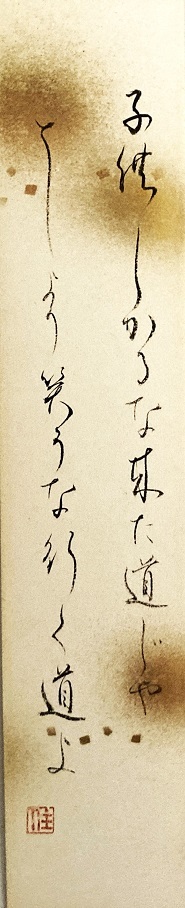 子供しかるな来た道じゃ
としより笑うな行く道よ